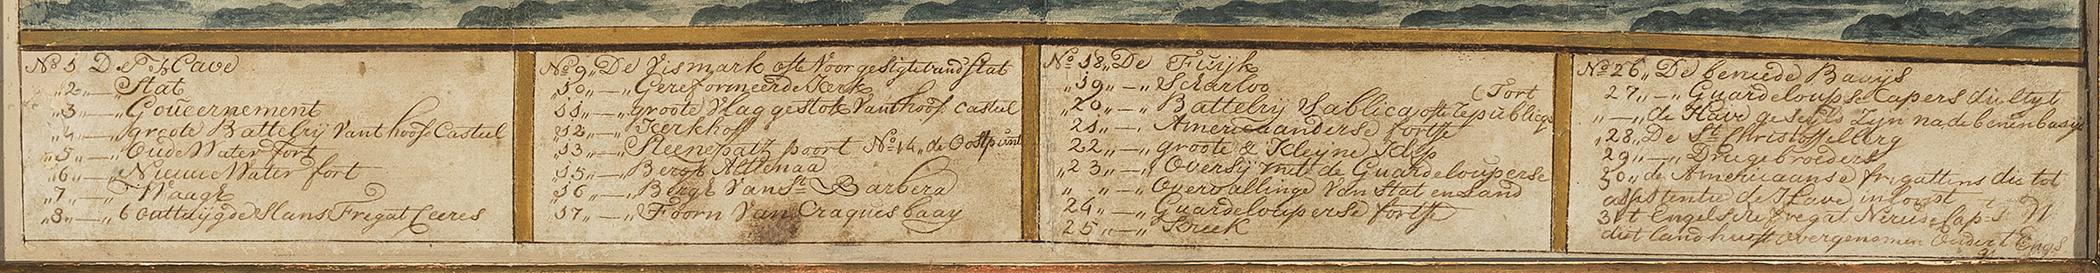 No 1 De Have
„2„—„Stat
„3„—„Gouvernement
„4„—„groote Battelrij Vant hoofd Casteel
„5„—„Oude Water fort
„6„—„Nieuwe Water fort
„7„—„Waage
„8„—„t outtuijgde Slans Fregat Ceeres
No 9„De Vismark ofte Voor gesigte van d stat
„10„—„Gereformeerde Kerk
„11„—„groote Vlaggestok Vant hoof casteel
„12„—„Kerkhoff
„13„—„Steenepatz poort No 14„de Oostpunt
„15„—„Bergt Altenaa
„16„—„Bergt Van St Barbera
„17„—„Toorn Van Craques baay
No 18„De Fuijk
„19„—„Scharloo
„20„—„Battelrij Sablica ofte Republiqs (Fort
21„—„Americaanderse fortje
22„—„groote & Kleijne Klip
„23„—„Oversij mit de Guardelouperse
„ „—„Overvallinge Van Stat en Land
24„—„Guardelouperse fortje
25„—„Kreek
No 26„De beneede Baaijs
27„—„Guardeloupse Capers die ltyt
„—„de Have geseijlt zyn na de benen baaije
„28„De St Christoffelberg
29„—„Driegebroeders
30„de Americaanse fregattens die tot
assistentie de Have in loopt
31 t Engelsche fregat Nereide Cap-t
diet land heeft overgenomen Onder t Engs